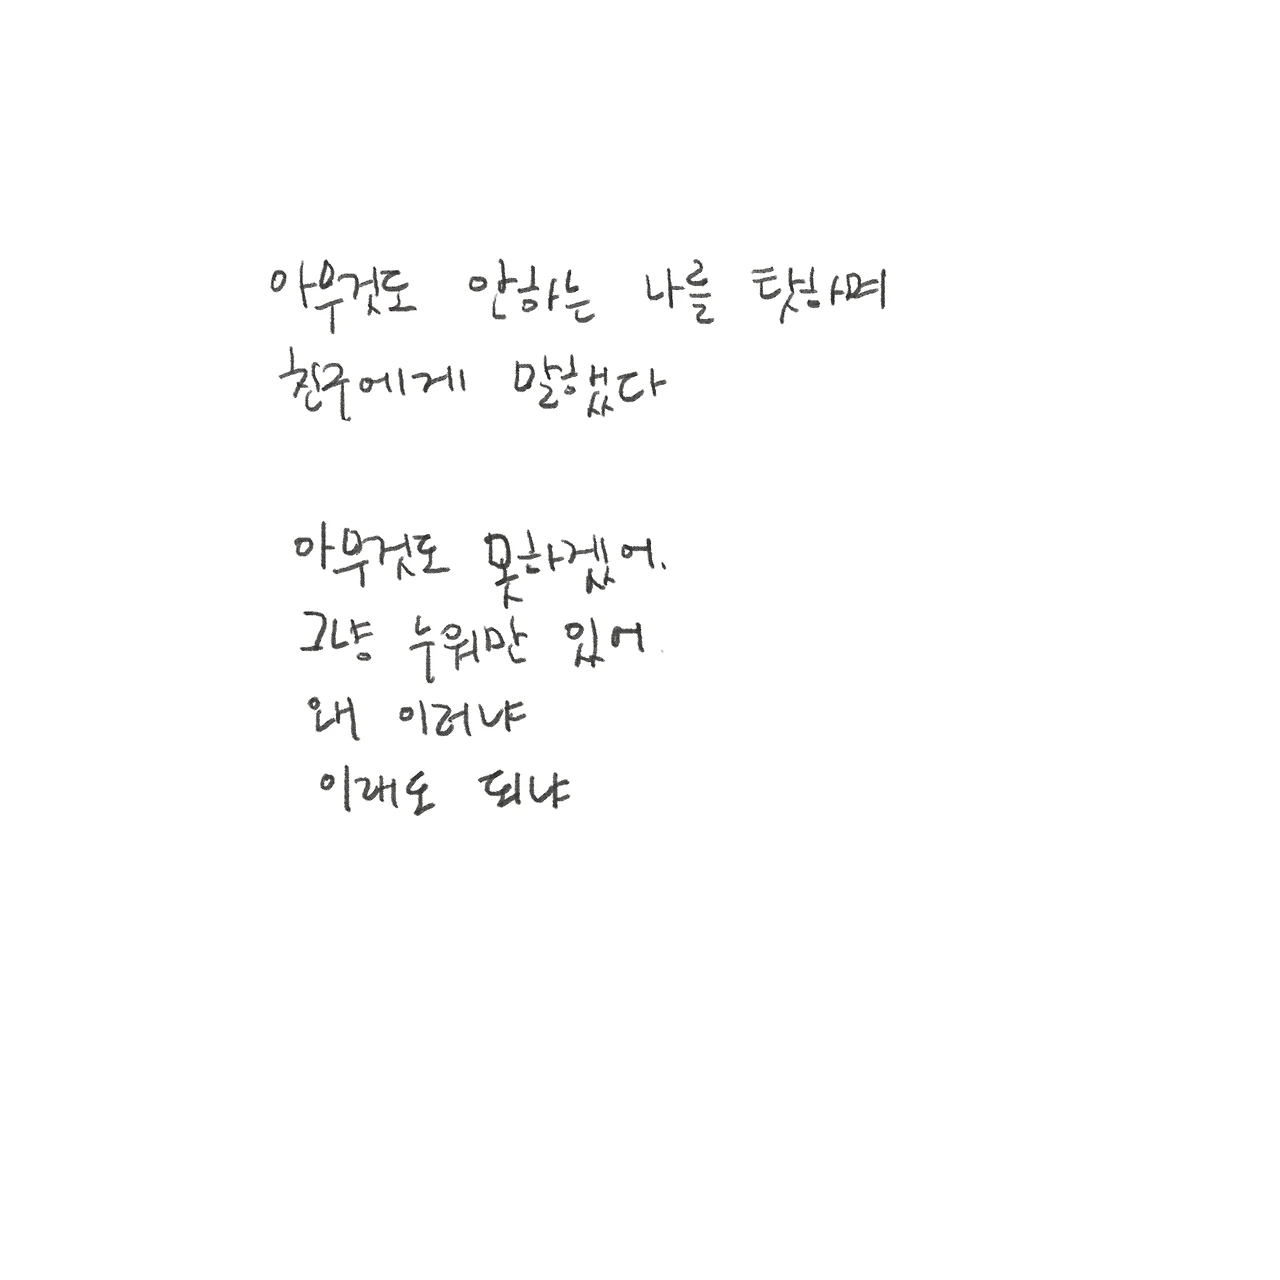 아무것도 안하는 나를 탓하며
친구에게 말했다
아무것도 못하겠어.
그냥 누워만 있어.
왜 이러냐
이래도 되냐